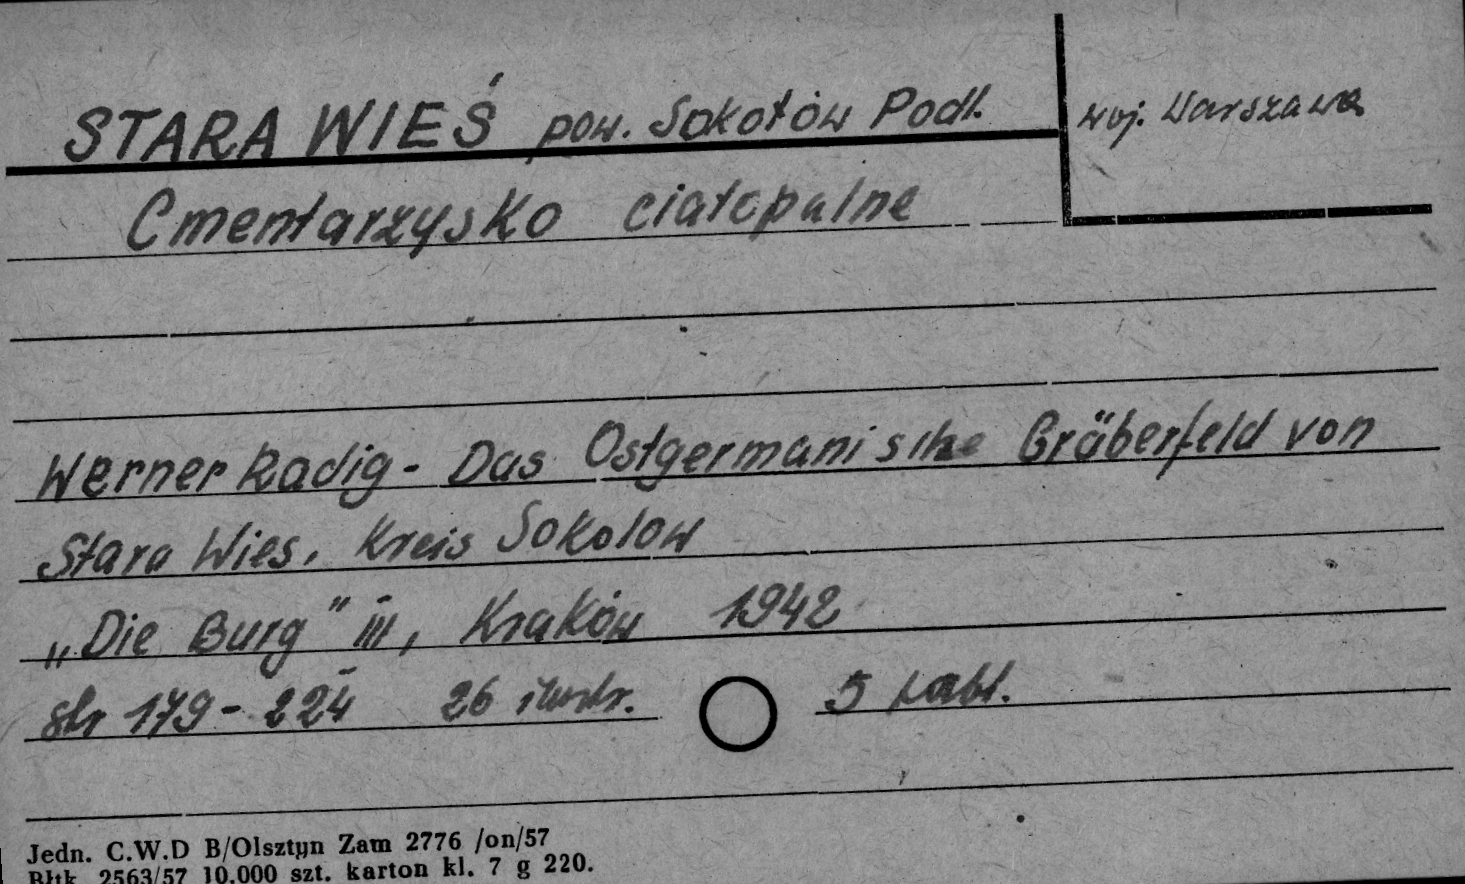 STARA WIEŚ pow. Sokołów Podl.
woj. Warszawa
Cmentarzysko ciałopalne
Werner Radig - Das Ostgermanische Gräberfeld von
Stara Wies, Kreis Sokolow
„Die Burg" III, Kraków 1942
str 179 - 224 26 ilustr. 5 tabl.
Jedn. C.W.D B/Olsztyn Zam 2776 /on/57
Błtk. 2563/57 10.000 szt. karton kl. 7 g 220.